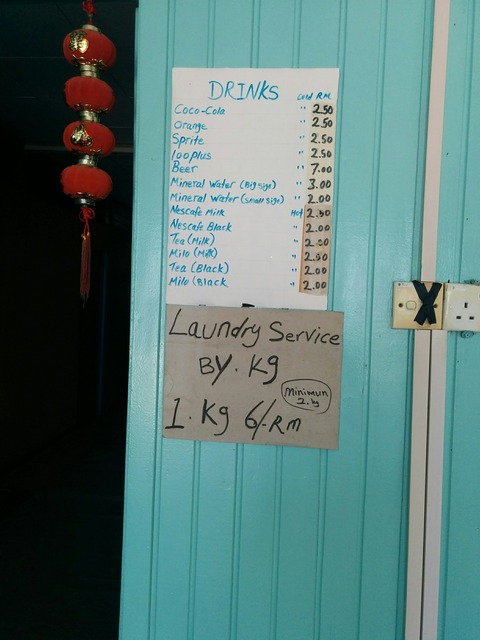 DRINKS Cold RM
Coco-Cola " 2.50
Orange " 2.50
Sprite " 2.50
100plus " 2.50
Beer " 7.00
Mineral Water (Big size) " 3.00
Mineral Water (small size) " 2.00
Nescafe Milk Hot 2.50
Nescafe Black " 2.00
Tea (Milk) "
Milo (Milk) " 2.50
Tea (Black) " 2.00
Milo (Black " 2.00
Laundry Service
BY. Kg
Minimun
2. kg
1. Kg 6/.RM